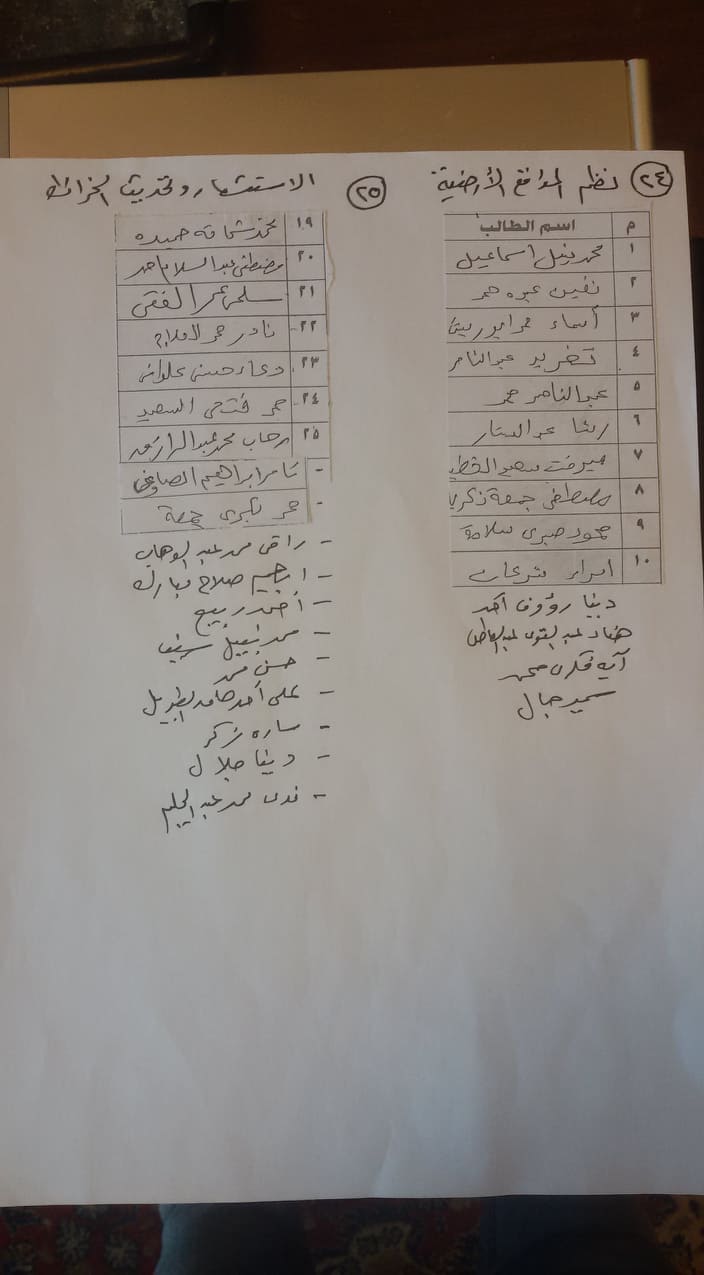 ٢٤ نظم المواقع الأرضية
م اسم الطالب
١ محمد نبيل اسماعيل
٢ نفين عبده محمد
٣ أسماء محمد ابو ريشة
٤ تغريد عبد الناصر
٥ عبد الناصر محمد
٦ رشا عبد الستار
٧ ميرفت سعيد القطب
٨ مصطفى جمعة زكريا
٩ محمود صبرى سلامة
١٠ اسراء شرعان
دينا رؤوف احمد
هناد عبد القوى عبد العاطى
آيه فكرى محمد
سمير جمال
٢٥ الاستشعار وتحديث الخرائط
١٩ محمد شحاته حميده
٢٠ مصطفى عبد السلام احمد
٢١ سلمى عمر الفقى
٢٢ نادر محمد
٢٣ دعاء حسنى علوانى
٢٤ محمد فتحى السعيد
٢٥ رحاب محمد عبد الرازق
- تامر ابراهيم الصاوى
- محمد بكرى جمعة
- راقى محمد عبد الوهاب
- ابراهيم صلاح مبارك
- أحمد ربيع
- محمد نبيل
- حسن محمد
- على أحمد حامد الطويل
- ساره زكر
- دينا جلال
- ندى محمد عبد الحليم